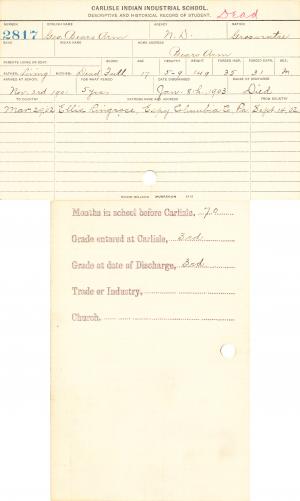 CARLISLE INDIAN INDUSTRIAL SCHOOL.
DESCRIPTIVE AND HISTORICAL RECORD OF STUDENT. Dead
NUMBER ENGLISH NAME AGENCY NATION
2817 Geo. Bears Arm N. D. Grosventre
BAND INDIAN NAME HOME ADDRESS
Bears Arm
PARENTS LIVING OR DEAD BLOOD AGE HEIGHT WEIGHT FORCED INSP. FORCED EXPR. SEX
FATHER, Living MOTHER, Dead Full 17 5-9 149 35 31 M
ARRIVED AT SCHOOL FOR WHAT PERIOD DATE DISCHARGED CAUSE OF DISCHARGE
Nov. 3rd 1901 5 yrs Jan. 8th 1903 Died
TO COUNTRY PATRONS NAME AND ADDRESS FROM COUNTRY
Mar 29, 02 Ellis Ringrose, Espy Columbia Co. Pa. Sept. 14, 02
Months in school before Carlisle, 70
Grade entered at Carlisle, 3rd
Grade at date of Discharge, 3rd
Trade or Industry,
Church.